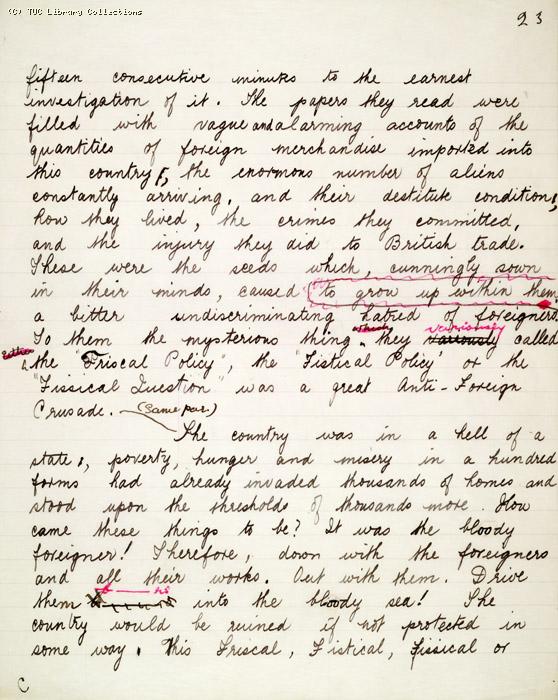 (C) TUC Library Collections
23
fifteen consecutive minutes to the earnest
investigation of it. The papers they read were
filled with vague and alarming accounts of the
quantities of foreign merchandise imported into
this country, the enormous number of aliens
constantly arriving, and their destitute conditions,
how they lived, the crimes they committed,
and the injury they did to British trade.
These were the seeds which, cunningly sown
in their minds, caused to grow up within them
a bitter undiscriminating hatred of foreigners.
To them the mysterious thing which they variously variously called
either the "Friscal Policy", the "Fistical Policy" or the
"Fissical Question" was a great Anti-Foreign
Crusade. (same par.)
The country was in a hell of a
state, poverty, hunger and misery in a hundred
forms had already invaded thousands of homes and
stood upon the thresholds of thousands more. How
came these things to be? It was the bloody
foreigner! Therefore, down with the foreigners
and all their works. Out with them. Drive
them into the bloody sea! The
country would be ruined if not protected in
some way. This Friscal, Fistical, Fissical or
C